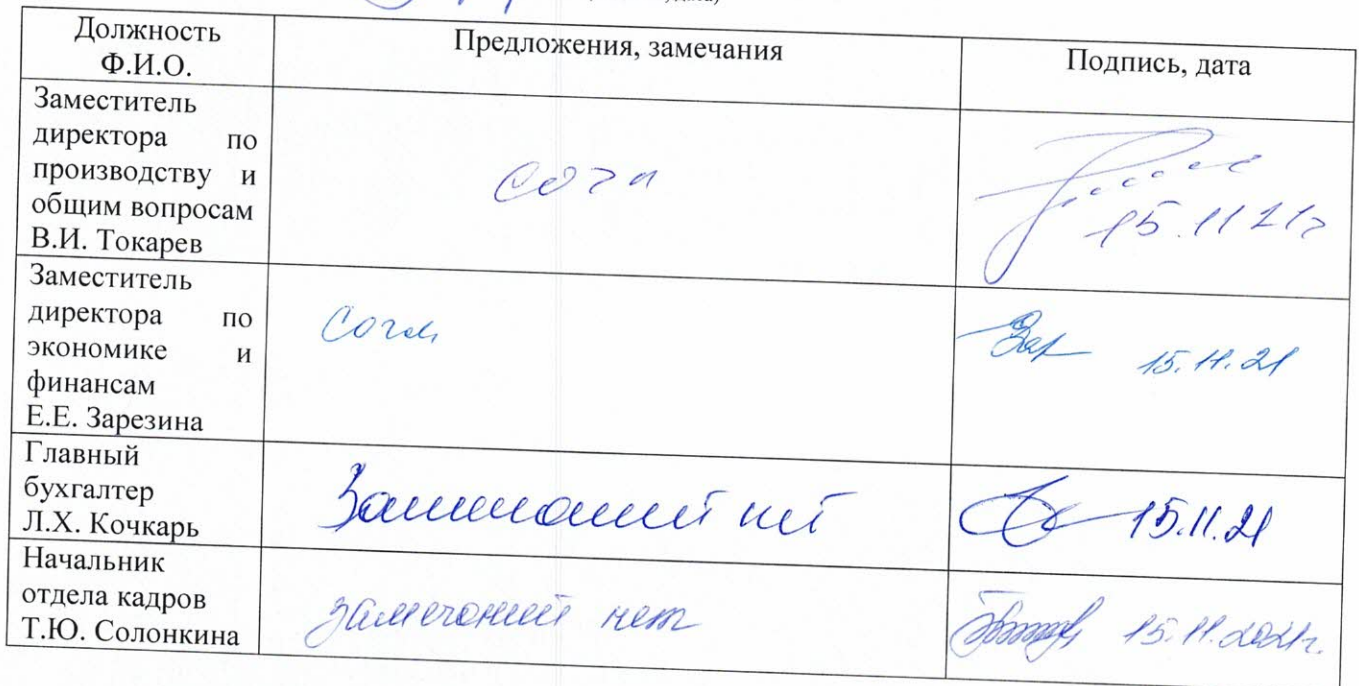 Должность
Ф.И.О.
Предложения, замечания
Подпись, дата
Заместитель
директора по
производству и
общим вопросам
В.И. Токарев
согл
15.11.21г
Заместитель
директора по
экономике и
финансам
Е.Е. Зарезина
согл
15.11.21
Главный
бухгалтер
Л.Х. Кочкарь
Замечаний нет
15.11.21
Начальник
отдела кадров
Т.Ю. Солонкина
замечаний нет
15.11.2021г.